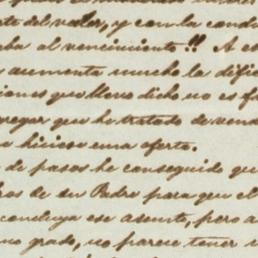 te del valor, y con la condi
ba al vencimiento!! A es
aumenta mucho la difi
iones que llevo dicho no es fa
regar que he tratado de vend
hiciese una oferta.
de pasos he conseguido qu
de su Padre para que el
concluya ese asunto, pero a
mo grado, no parece tener